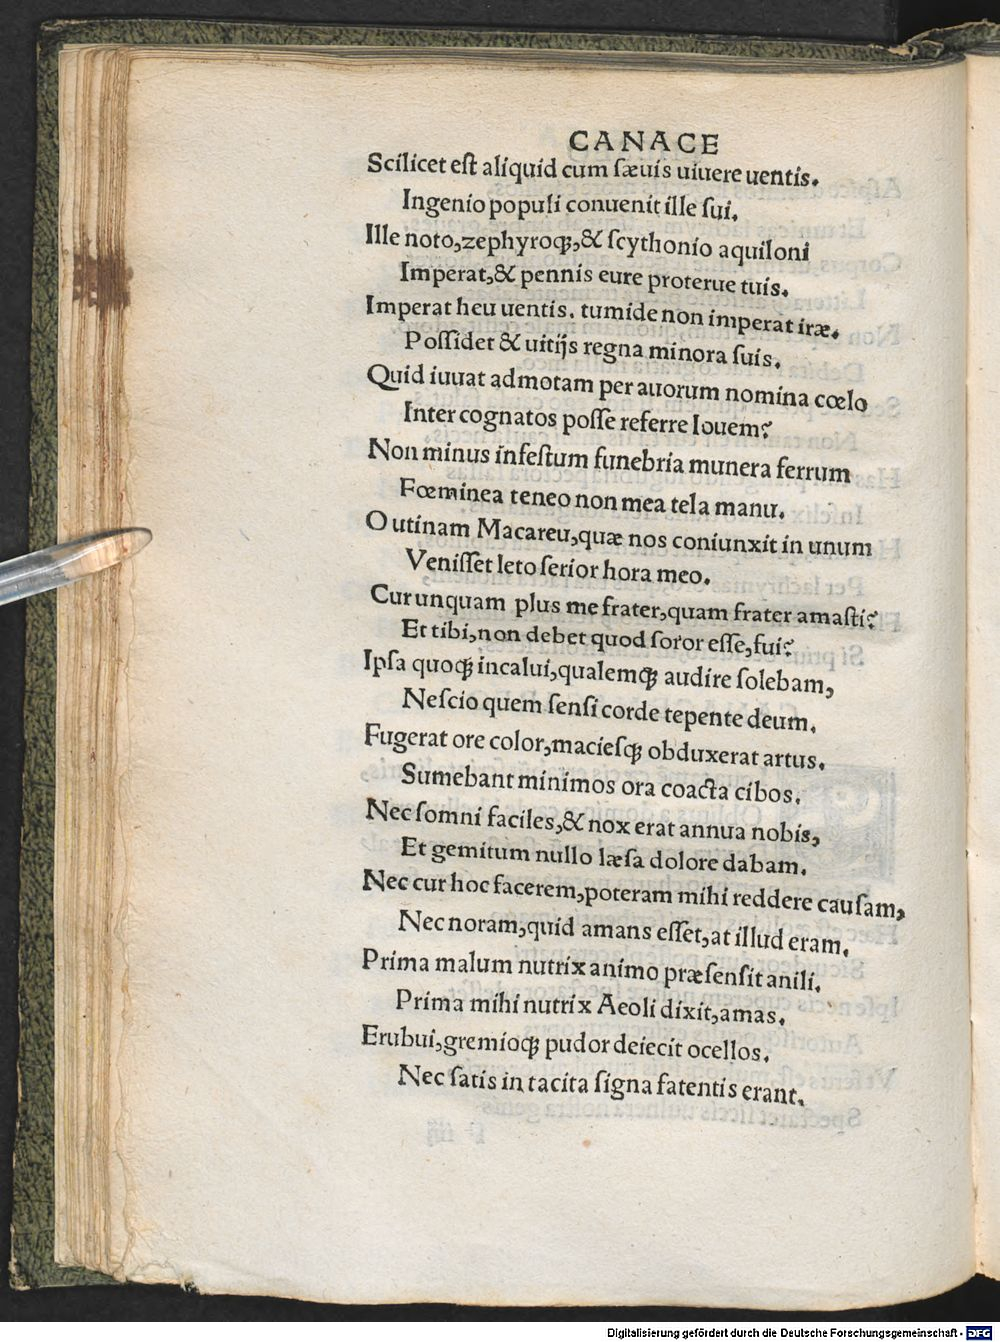 CANACE
Scilicet eſt aliquid cum ſæuis uiuere uentis.
Ingenio populi conuenit ille ſui.
Ille noto,zephyroqꝫ,& ſcythonio aquiloni
Imperat,& pennis eure proterue tuis.
Imperat heu uentis. tumide non imperat iræ.
Poſſidet & uitijs regna minora ſuis.
Quid iuuat admotam per auorum nomina cœlo
Inter cognatos poſſe referre Iouem?
Non minus infeſtum funebria munera ferrum
Fœminea teneo non mea tela manu.
O utinam Macareu,quæ nos coniunxit in unum
Veniſſet leto ſerior hora meo.
Cur unquam plus me frater,quam frater amaſti?
Et tibi,non debet quod ſoror eſſe,fui?
Ipſa quoqꝫ incalui,qualemqꝫ audire ſolebam,
Neſcio quem ſenſi corde tepente deum.
Fugerat ore color,macieſqꝫ obduxerat artus.
Sumebant minimos ora coacta cibos.
Nec ſomni faciles,& nox erat annua nobis,
Et gemitum nullo læſa dolore dabam.
Nec cur hoc facerem,poteram mihi reddere cauſam,
Nec noram,quid amans eſſet,at illud eram.
Prima malum nutrix animo præſenſit anili.
Prima mihi nutrix Aeoli dixit,amas.
Erubui,gremioqꝫ pudor deiecit ocellos.
Nec ſatis in tacita ſigna fatentis erant.
Digitalisierung gefördert durch die Deutsche Forschungsgemeinschaft - DFG